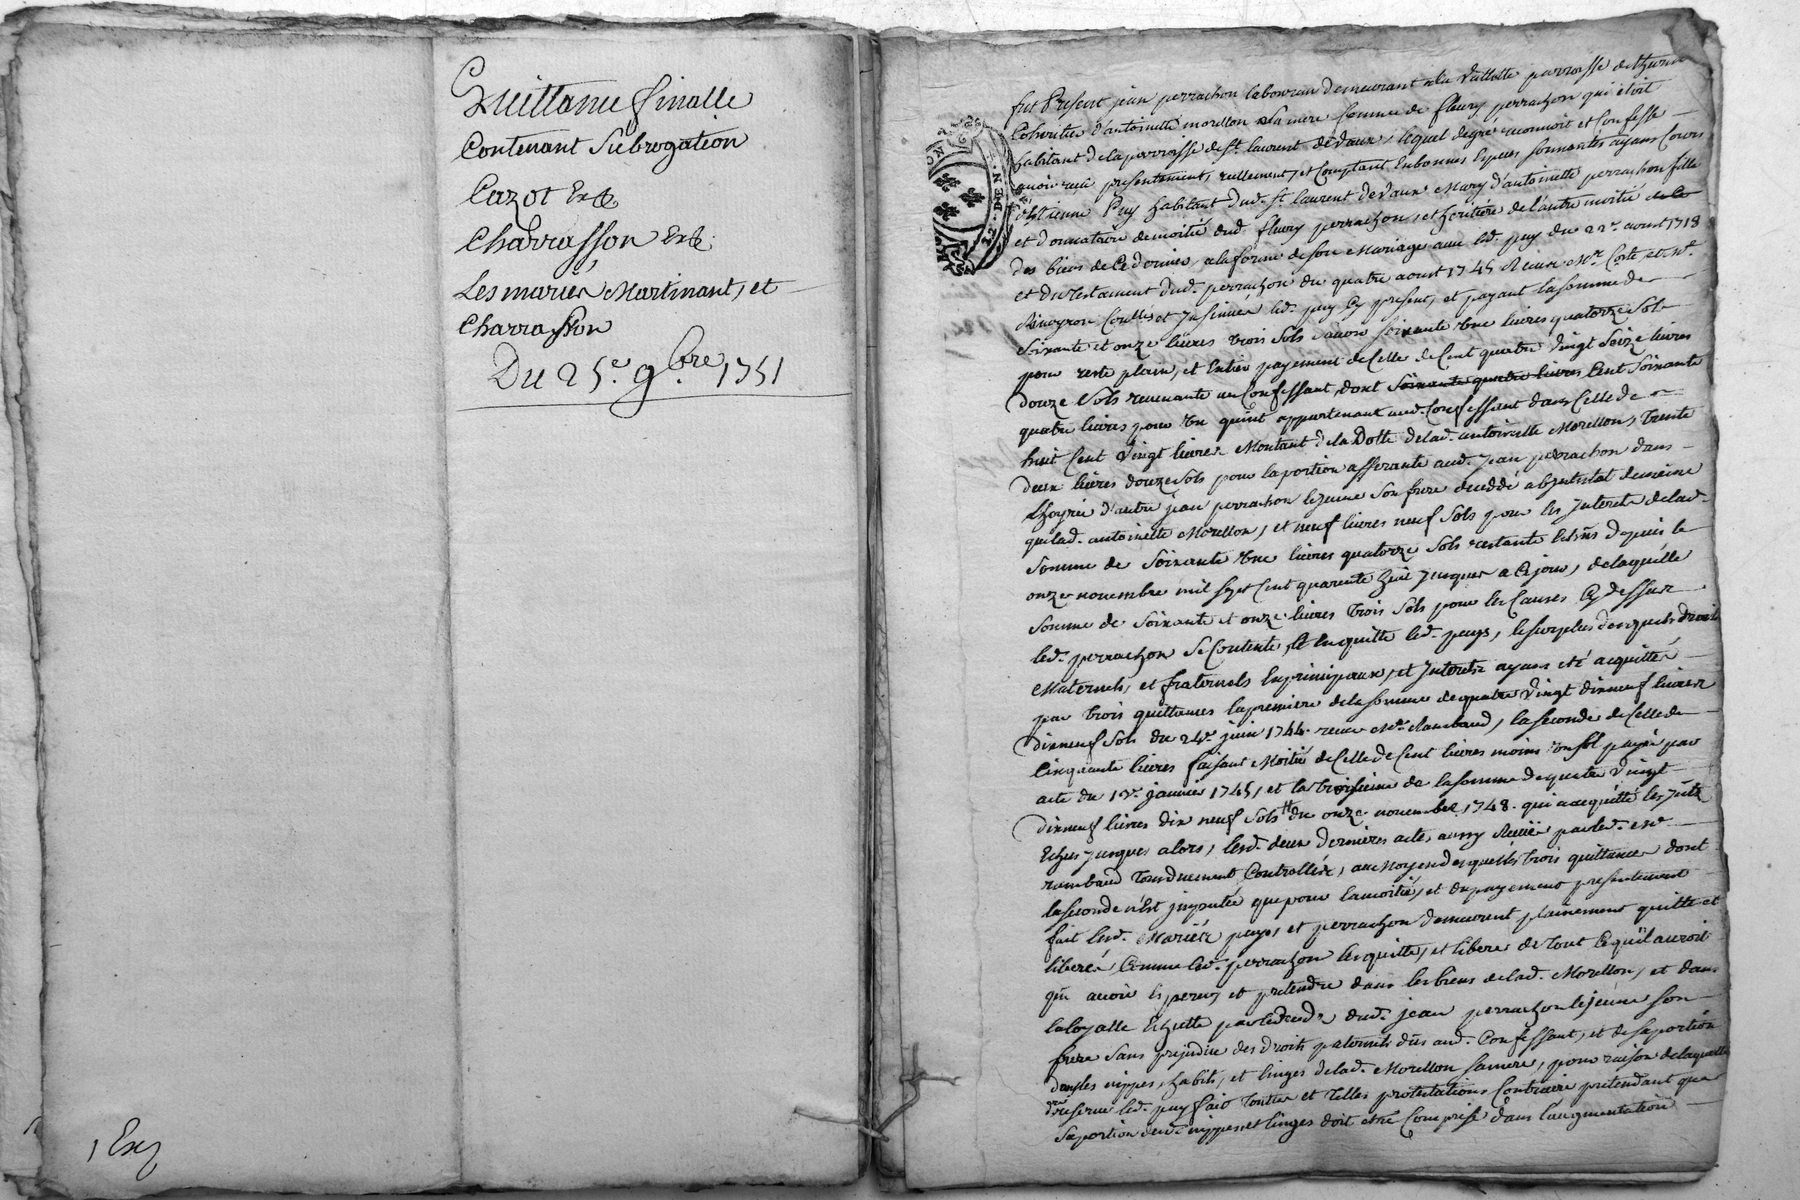 Quittance finalle
Contenant Subrogation
Cazot Exte
Charrasson Exte
Les mariés Martinant, et
Charrasson
Du 25e. 9bre 1751
1 Ex
fut Present jean perrachon laboureur demeurant a la Vallette parroisse de
Coheritier d'antoinette morellon sa mere femme de fleury perrachon qui étoit
habitant de la parroisse de St. laurent devaux, lequel degré reconnoit et Confesse
avoir reçu presentement, reellement, et Comptant En bonnes Especes sonnantes ayant Cours
d'Estienne Puy habitant dud. St. laurent devaux Mary d'antoinette perrachon fille
et donnataire de moitié dud. fleury perrachon, et heritière de l'autre moitié de le
des biens de Ce dernier, a la forme de son Mariage avec led. puy du 22e. avril 1718
et du testament dud. perrachon du quatre aoust 1745 Receus Me. Coste et Me.
Controllés et Insinués led. puy Cy present, et payant la somme de
Soixante et onze livres trois sols savoir soixante une livres quatorze sols
pour reste plain, et Entier payement de Celle de Cent quatre Vingt Seize livres
douze sols revenante au Confessant, dont soixante quatre livres Cent Soixante
quatre livres pour un quint appartenant aud. Confessant dans Celle de
huit Cent Vingt livres Montant de la Dotte de lad. antoinette Morellon, trente
deux livres douze sols pour la portion afferante aud. jean perrachon dans
L'hoyrie d'autre jean perrachon lejeune son frere decedé abintestat de meme
que lad. antoinette Morellon, et neuf livres neuf sols pour les Interets de lad.
somme de Soixante une livres quatorze sols restante depuis le
onze novembre mil sept Cent quarante huit jusques a Ce jour, de laquelle
somme de Soixante et onze livres trois sols pour les Causes Cy dessus
led. perrachon se Contente, et En quitte led. puy, le surplus desquels droits
Maternels, et fraternels En principaux, et Interets ayans eté acquittés
par trois quittances la premiere de la somme de quatre Vingt dixneuf livres
dixneuf sols du 24e. juin 1744. receue Me. Rambaud, la seconde de Celle de
Cinquante livres faisant Moitié de Celle de Cent livres moins un sol payée par
acte du 12e. janvier 1745, et la troisieme de la somme de quatre Vingt
dixneuf livres dix neuf sols du onze novembre 1748. qui a acquitté les Interets
Echus jusques alors, lesd. deux derniers actes aussy Receus par led. Me
rambaud tous duement Controllés, au Moyen desquelles trois quittances dont
la seconde n'Est imputée que pour la moitié, et du payement presentement
fait lesd. Mariés puy, et perrachon demeurent plainement quittes et
liberés, Comme led. perrachon les quitte, et libere de tout Ce qu'il auroit
pû avoir Esperer, et pretendre dans les biens de lad. Morellon, et dans
la loyalle Echutte par le deceds dud. jean perrachon lejeune son
frere sans prejudice des droits paternels dûs aud. Confessant, et de sa portion
dans les nippes, habits, et linges de lad. Morellon sa mere, pour raison de laquelle
reserve led. puy fait toutes et telles protestations Contraires pretendant que
sa portion desd. nippes et linges doit etre Comprise dans l'augmentation